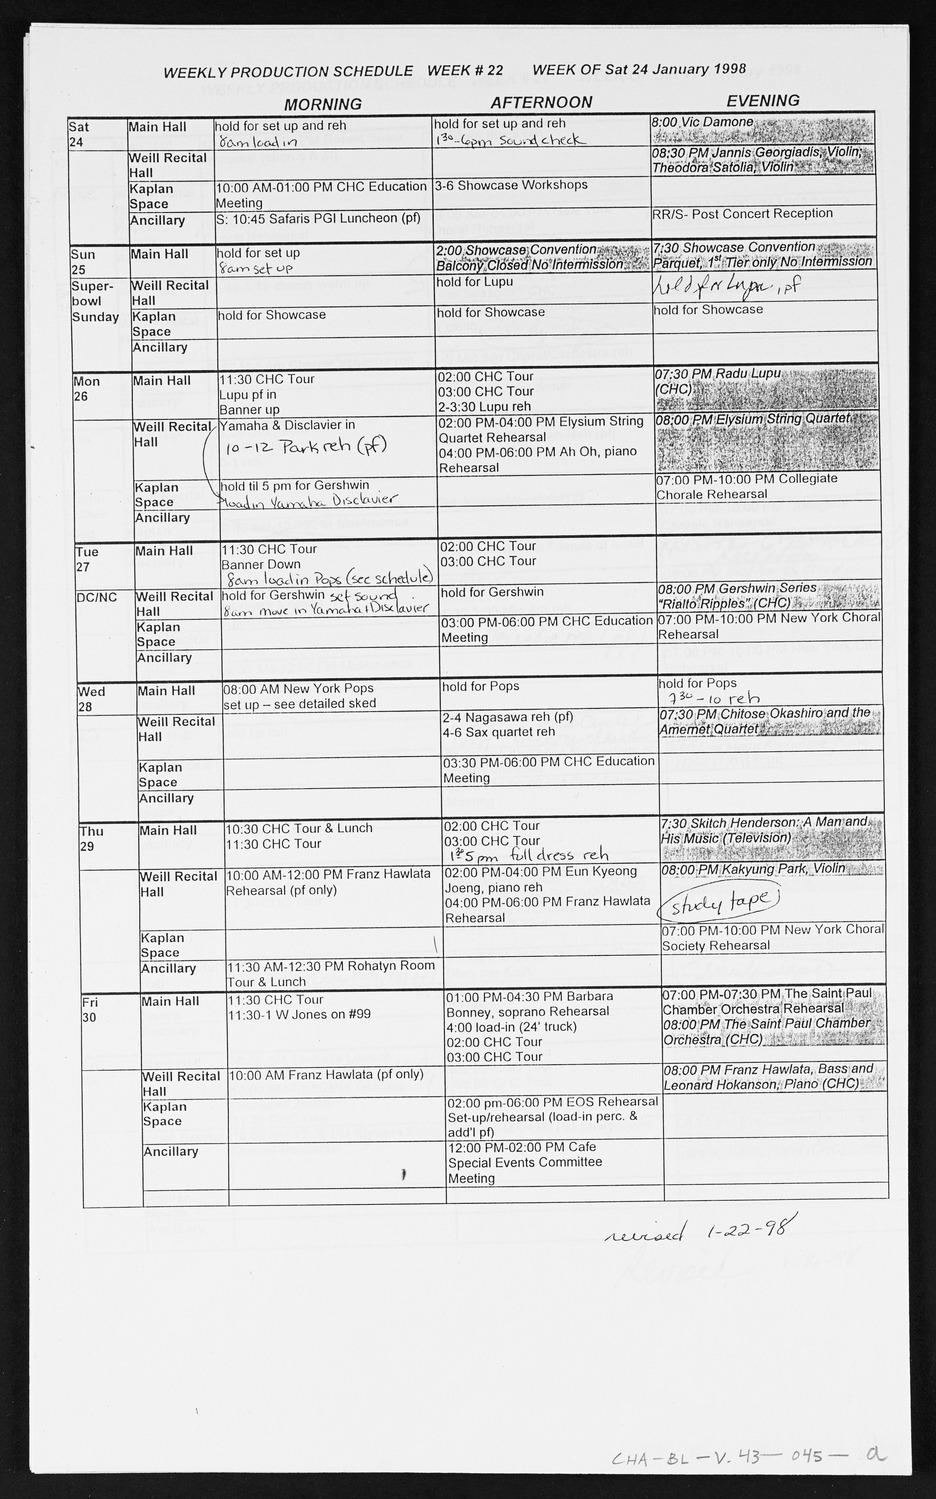 WEEKLY PRODUCTION SCHEDULE WEEK # 22 WEEK OF Sat 24 January 1998
MORNING AFTERNOON EVENING
Sat
24
Main Hall
hold for set up and reh
8am load in
hold for set up and reh
1³⁰-6pm Sound check
8:00 Vic Damone
Weill Recital
Hall
08:30 PM Jannis Georgiadis, Violin;
Theodora Satolia, Violin
Kaplan
Space
10:00 AM-01:00 PM CHC Education
Meeting
3-6 Showcase Workshops
Ancillary
S: 10:45 Safaris PGI Luncheon (pf)
RR/S- Post Concert Reception
Sun
25
Super-
bowl
Sunday
Main Hall
hold for set up
8am set up
2:00 Showcase Convention
Balcony Closed No Intermission
7:30 Showcase Convention
Parquet, 1st Tier only No Intermission
Weill Recital
Hall
hold for Lupu
hold for Lupu, pf
Kaplan
Space
hold for Showcase
hold for Showcase
hold for Showcase
Ancillary
Mon
26
Main Hall
11:30 CHC Tour
Lupu pf in
Banner up
02:00 CHC Tour
03:00 CHC Tour
2-3:30 Lupu reh
07:30 PM Radu Lupu
(CHC)
Weill Recital
Hall
Yamaha & Disclavier in
10-12 Park reh (pf)
02:00 PM-04:00 PM Elysium String
Quartet Rehearsal
04:00 PM-06:00 PM Ah Oh, piano
Rehearsal
08:00 PM Elysium String Quartet
Kaplan
Space
hold til 5 pm for Gershwin
load in Yamaha Disclavier
07:00 PM-10:00 PM Collegiate
Chorale Rehearsal
Ancillary
Tue
27
DC/NC
Main Hall
11:30 CHC Tour
Banner Down
8am load in Pops (see schedule)
02:00 CHC Tour
03:00 CHC Tour
Weill Recital
Hall
hold for Gershwin set sound
8am move in Yamaha + Disclavier
hold for Gershwin
08:00 PM Gershwin Series
"Rialto Ripples" (CHC)
Kaplan
Space
03:00 PM-06:00 PM CHC Education
Meeting
07:00 PM-10:00 PM New York Choral
Rehearsal
Ancillary
Wed
28
Main Hall
08:00 AM New York Pops
set up – see detailed sked
hold for Pops
hold for Pops
7³⁰-10 reh
Weill Recital
Hall
2-4 Nagasawa reh (pf)
4-6 Sax quartet reh
07:30 PM Chitose Okashiro and the
Amernet Quartet
Kaplan
Space
03:30 PM-06:00 PM CHC Education
Meeting
Ancillary
Thu
29
Main Hall
10:30 CHC Tour & Lunch
11:30 CHC Tour
02:00 CHC Tour
03:00 CHC Tour
1³⁰5pm full dress reh
7:30 Skitch Henderson: A Man and
His Music (Television)
Weill Recital
Hall
10:00 AM-12:00 PM Franz Hawlata
Rehearsal (pf only)
02:00 PM-04:00 PM Eun Kyeong
Joeng, piano reh
04:00 PM-06:00 PM Franz Hawlata
Rehearsal
08:00 PM Kakyung Park, Violin
study tape
Kaplan
Space
07:00 PM-10:00 PM New York Choral
Society Rehearsal
Ancillary
11:30 AM-12:30 PM Rohatyn Room
Tour & Lunch
Fri
30
Main Hall
11:30 CHC Tour
11:30-1 W Jones on #99
01:00 PM-04:30 PM Barbara
Bonney, soprano Rehearsal
4:00 load-in (24' truck)
02:00 CHC Tour
03:00 CHC Tour
07:00 PM-07:30 PM The Saint Paul
Chamber Orchestra Rehearsal
08:00 PM The Saint Paul Chamber
Orchestra (CHC)
Weill Recital
Hall
10:00 AM Franz Hawlata (pf only)
08:00 PM Franz Hawlata, Bass and
Leonard Hokanson, Piano (CHC)
Kaplan
Space
02:00 pm-06:00 PM EOS Rehearsal
Set-up/rehearsal (load-in perc. &
add'l pf)
Ancillary
12:00 PM-02:00 PM Cafe
Special Events Committee
Meeting
revised 1-22-98
CHA-BL-V.43-045-a